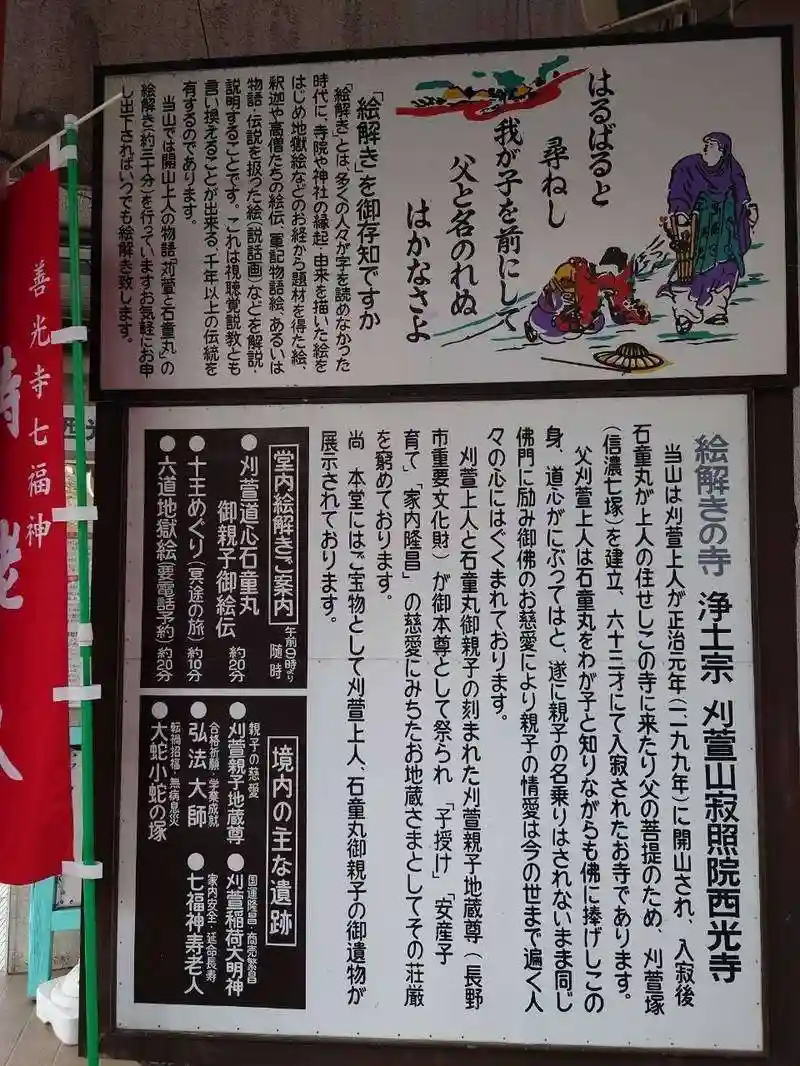 はるばると
尋ねし
我が子を前にして
父と名のれぬ
はかなさよ
「絵解き」を御存知ですか
「絵解き」とは、多くの人々が字を読めなかった
時代に、寺院や神社の縁起・由来を描いた絵を
はじめ地獄絵などのお経から題材を得た絵、
釈迦や高僧たちの絵伝、軍記物語絵、あるいは
物語・伝説を扱った絵(説話画)などを解説・
説明することです。これは視聴覚説教とも
言い換えることが出来る、千年以上の伝統を
有するのであります。
当山では開山上人の物語「刈萱と石童丸」の
絵解き(約三十分)を行っていますお気軽にお申
し出下さればいつでも絵解き致します。
絵解きの寺 浄土宗 刈萱山寂照院西光寺
当山は刈萱上人が正治元年(一一九九年)に開山され、入寂後
石童丸が上人の住せしこの寺に来たり父の菩提のため、刈萱塚
(信濃七塚)を建立、六十三才にて入寂されたお寺であります。
父刈萱上人は石童丸をわが子と知りながらも佛に捧げしこの
身、道心がにぶつてはと、遂に親子の名乗りはされないまま同じ
佛門に励み御佛のお慈愛により親子の情愛は今の世まで遍く人
々の心にはぐくまれております。
刈萱上人と石童丸御親子の刻まれた刈萱親子地蔵尊(長野
市重要文化財)が御本尊として祭られ「子授け」「安産子
育て」「家内隆昌」の慈愛にみちたお地蔵さまとしてその荘厳
を窮めております。
尚 本堂にはご宝物として刈萱上人、石童丸御親子の御遺物が
展示されております。
堂内絵解きご案内 午前9時より 随時
●刈萱道心石童丸
御親子御絵伝 約20分
●十王めぐり(冥途の旅) 約10分
●六道地獄絵(要電話予約) 約20分
境内の主な遺跡
親子の慈愛
●刈萱親子地蔵尊
国運隆昌・商売繁昌
●刈萱稲荷大明神
合格祈願・学業成就
●弘法大師
家内安全・延命長寿
●七福神寿老人
転禍招福・無病息災
●大蛇小蛇の塚
善光寺七福神
寿老人